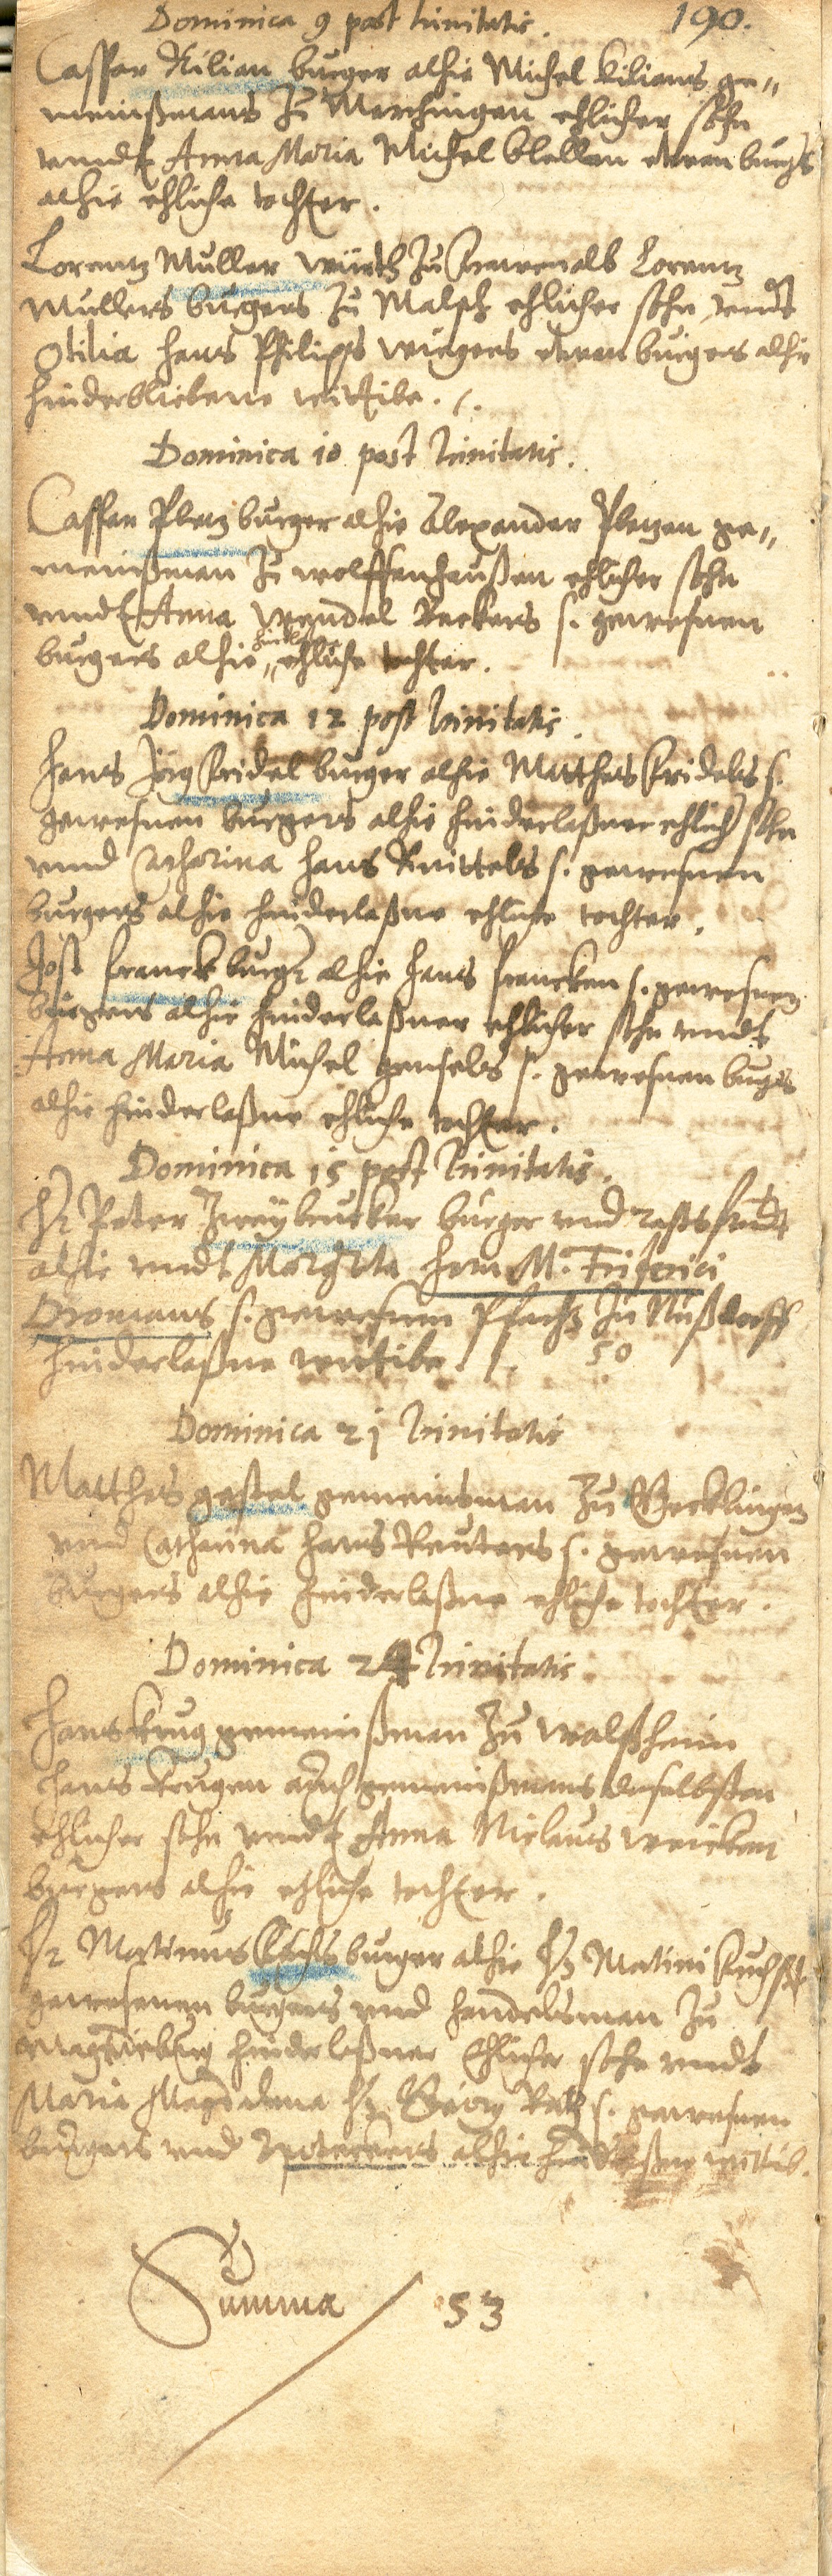 Dominica 9 post trinitatis. 190.
Caspar Kilian burger alhie Michel Kilians ge„
meinßmans zu Merchingen ehlicher sohn
undt Anna Maria Michel blellen etwan burgers
alhie ehliche tochter.
Lorentz Muller würth zu Lorentz
Mullers burgers zu Malsch ehlicher sohn undt
Otilia hans Philips wiegers etwan burgers alhie
hinderbliebene wittibe.
Dominica 10 post trinitatis.
Casper Pletz burger alhie Alexander Pletzen ge„
meinßman zu wolffenhaußen ehlicher sohn
undt Anna Wendel Beckers s. gewesnen
burgers alhie „ ehliche tochter.
Dominica 12 post trinitatis.
Hans Jörg Kridel burger alhie Matthes Kridels s.
gewesnen burgers alhie hinderlaßner ehlicher sohn
und Catharina hans Knittels s. gewesnen
burgers alhie hinderlaßne ehliche tochter.
Jost franck burger alhie hans francken s. gewesnen
burgers alhie hinderlaßner ehlicher sohn undt
Anna Maria Michel gensels s. gewesnen burgers
alhie hinderlaßne ehliche tochter.
Dominica 15 post trinitatis.
Hr Peter Zweybrucker burger und rahtsfreundt
alhie undt Margreta herrn M. Friderici
Dromans s. gewesenen Pfarhers zu Nußdorff
hinderlaßne wittibe. 50
Dominica 21 trinitatis
Matthes gestel gemeinsman zu Gecklingen
und Catharina hans Reuters s. gewesnen
burgers alhie hinderlaßne ehliche tochter.
Dominica 24 trinitatis.
Hans Krug gemeinßman zu Walßheim
hans Krugen auch gemeinßmans daselbsten
ehlicher sohn undt Anna Niclaus weicken
burgers alhie ehliche tochter.
Hr Martinus Kuchs burger alhie Hr Martini Kuchß
gewesenen burgers und handelsman zu
Magdeburg hinderlaßner Ehlicher sohn undt
Maria Magdalena Hr Georg s. gewesnen
burgers und alhie hinderlaßne wittib.
Summa / 53